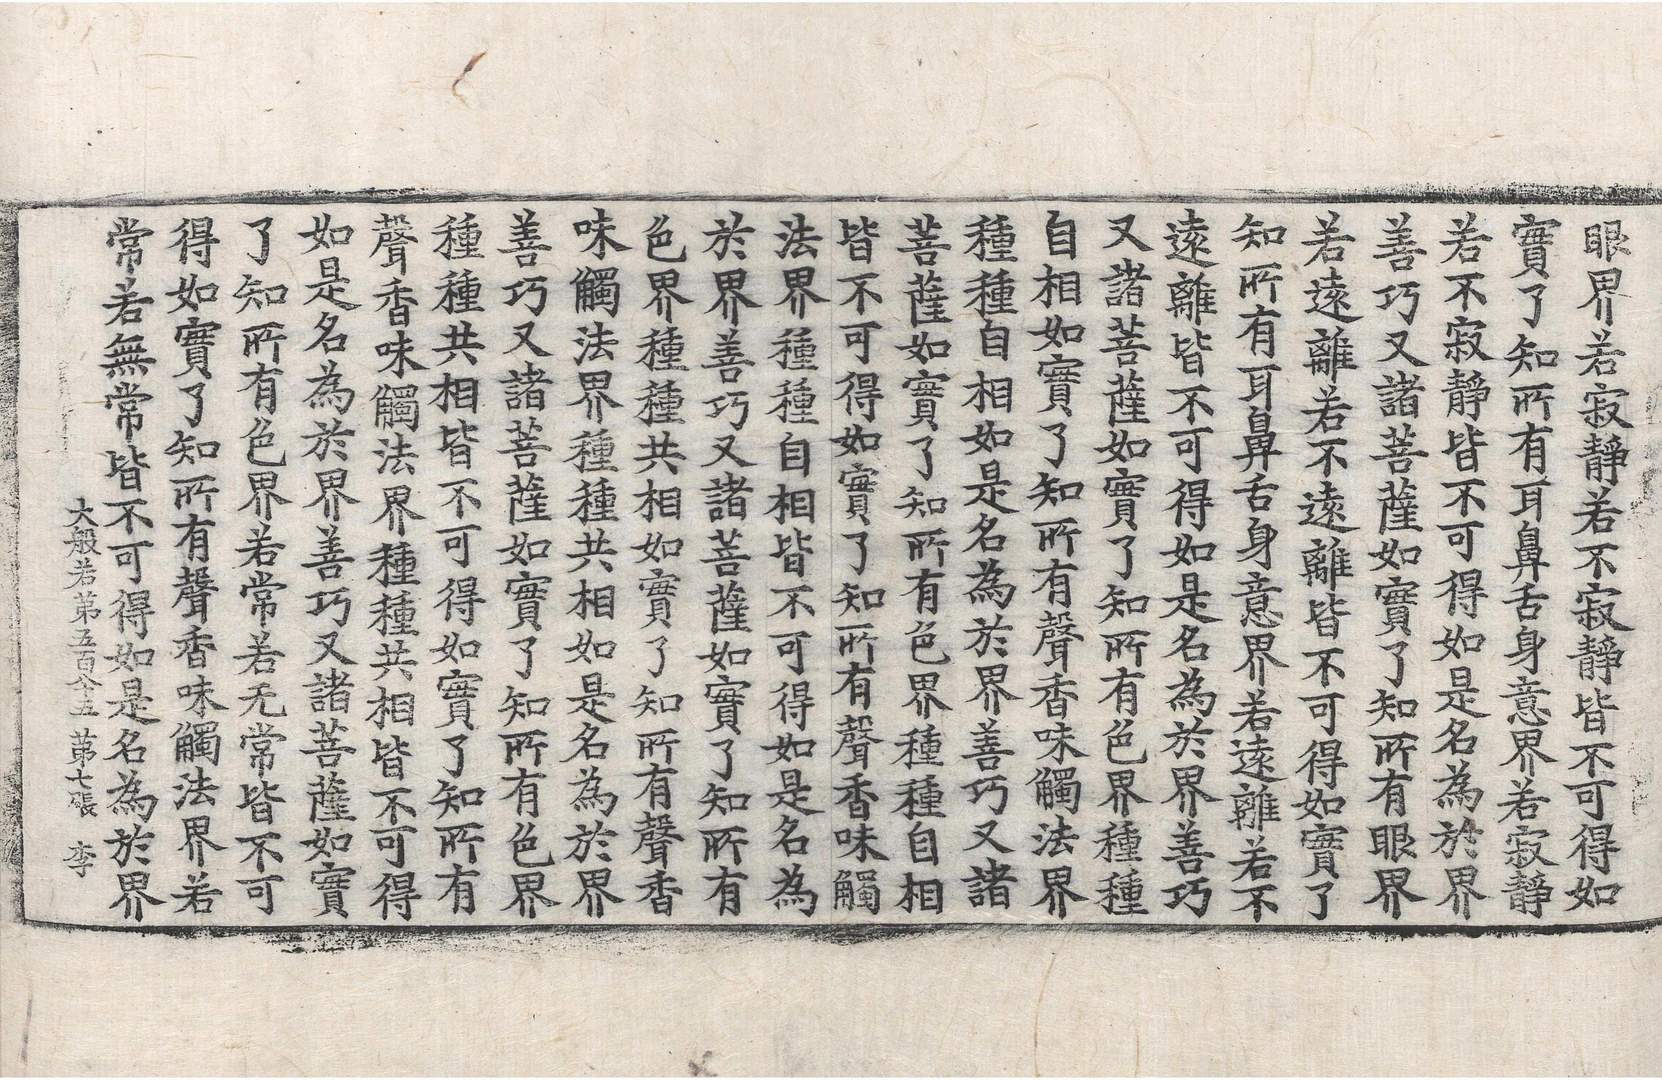 眼界若寂靜若不寂靜皆不可得如
實了知所有耳鼻舌身意界若寂靜
若不寂靜皆不可得如是名為於界
善巧又諸菩薩如實了知所有眼界
若遠離若不遠離皆不可得如實了
知所有耳鼻舌身意界若遠離若不
遠離皆不可得如是名為於界善巧
又諸菩薩如實了知所有色界種種
自相如實了知所有聲香味觸法界
種種自相如是名為於界善巧又諸
菩薩如實了知所有色界種種自相
皆不可得如實了知所有聲香味觸
法界種種自相皆不可得如是名為
於界善巧又諸菩薩如實了知所有
色界種種共相如實了知所有聲香
味觸法界種種共相如是名為於界
善巧又諸菩薩如實了知所有色界
種種共相皆不可得如實了知所有
聲香味觸法界種種共相皆不可得
如是名為於界善巧又諸菩薩如實
了知所有色界若常若无常皆不可
得如實了知所有聲香味觸法界若
常若無常皆不可得如是名為於界
大般若第五百九十五 第七張 李